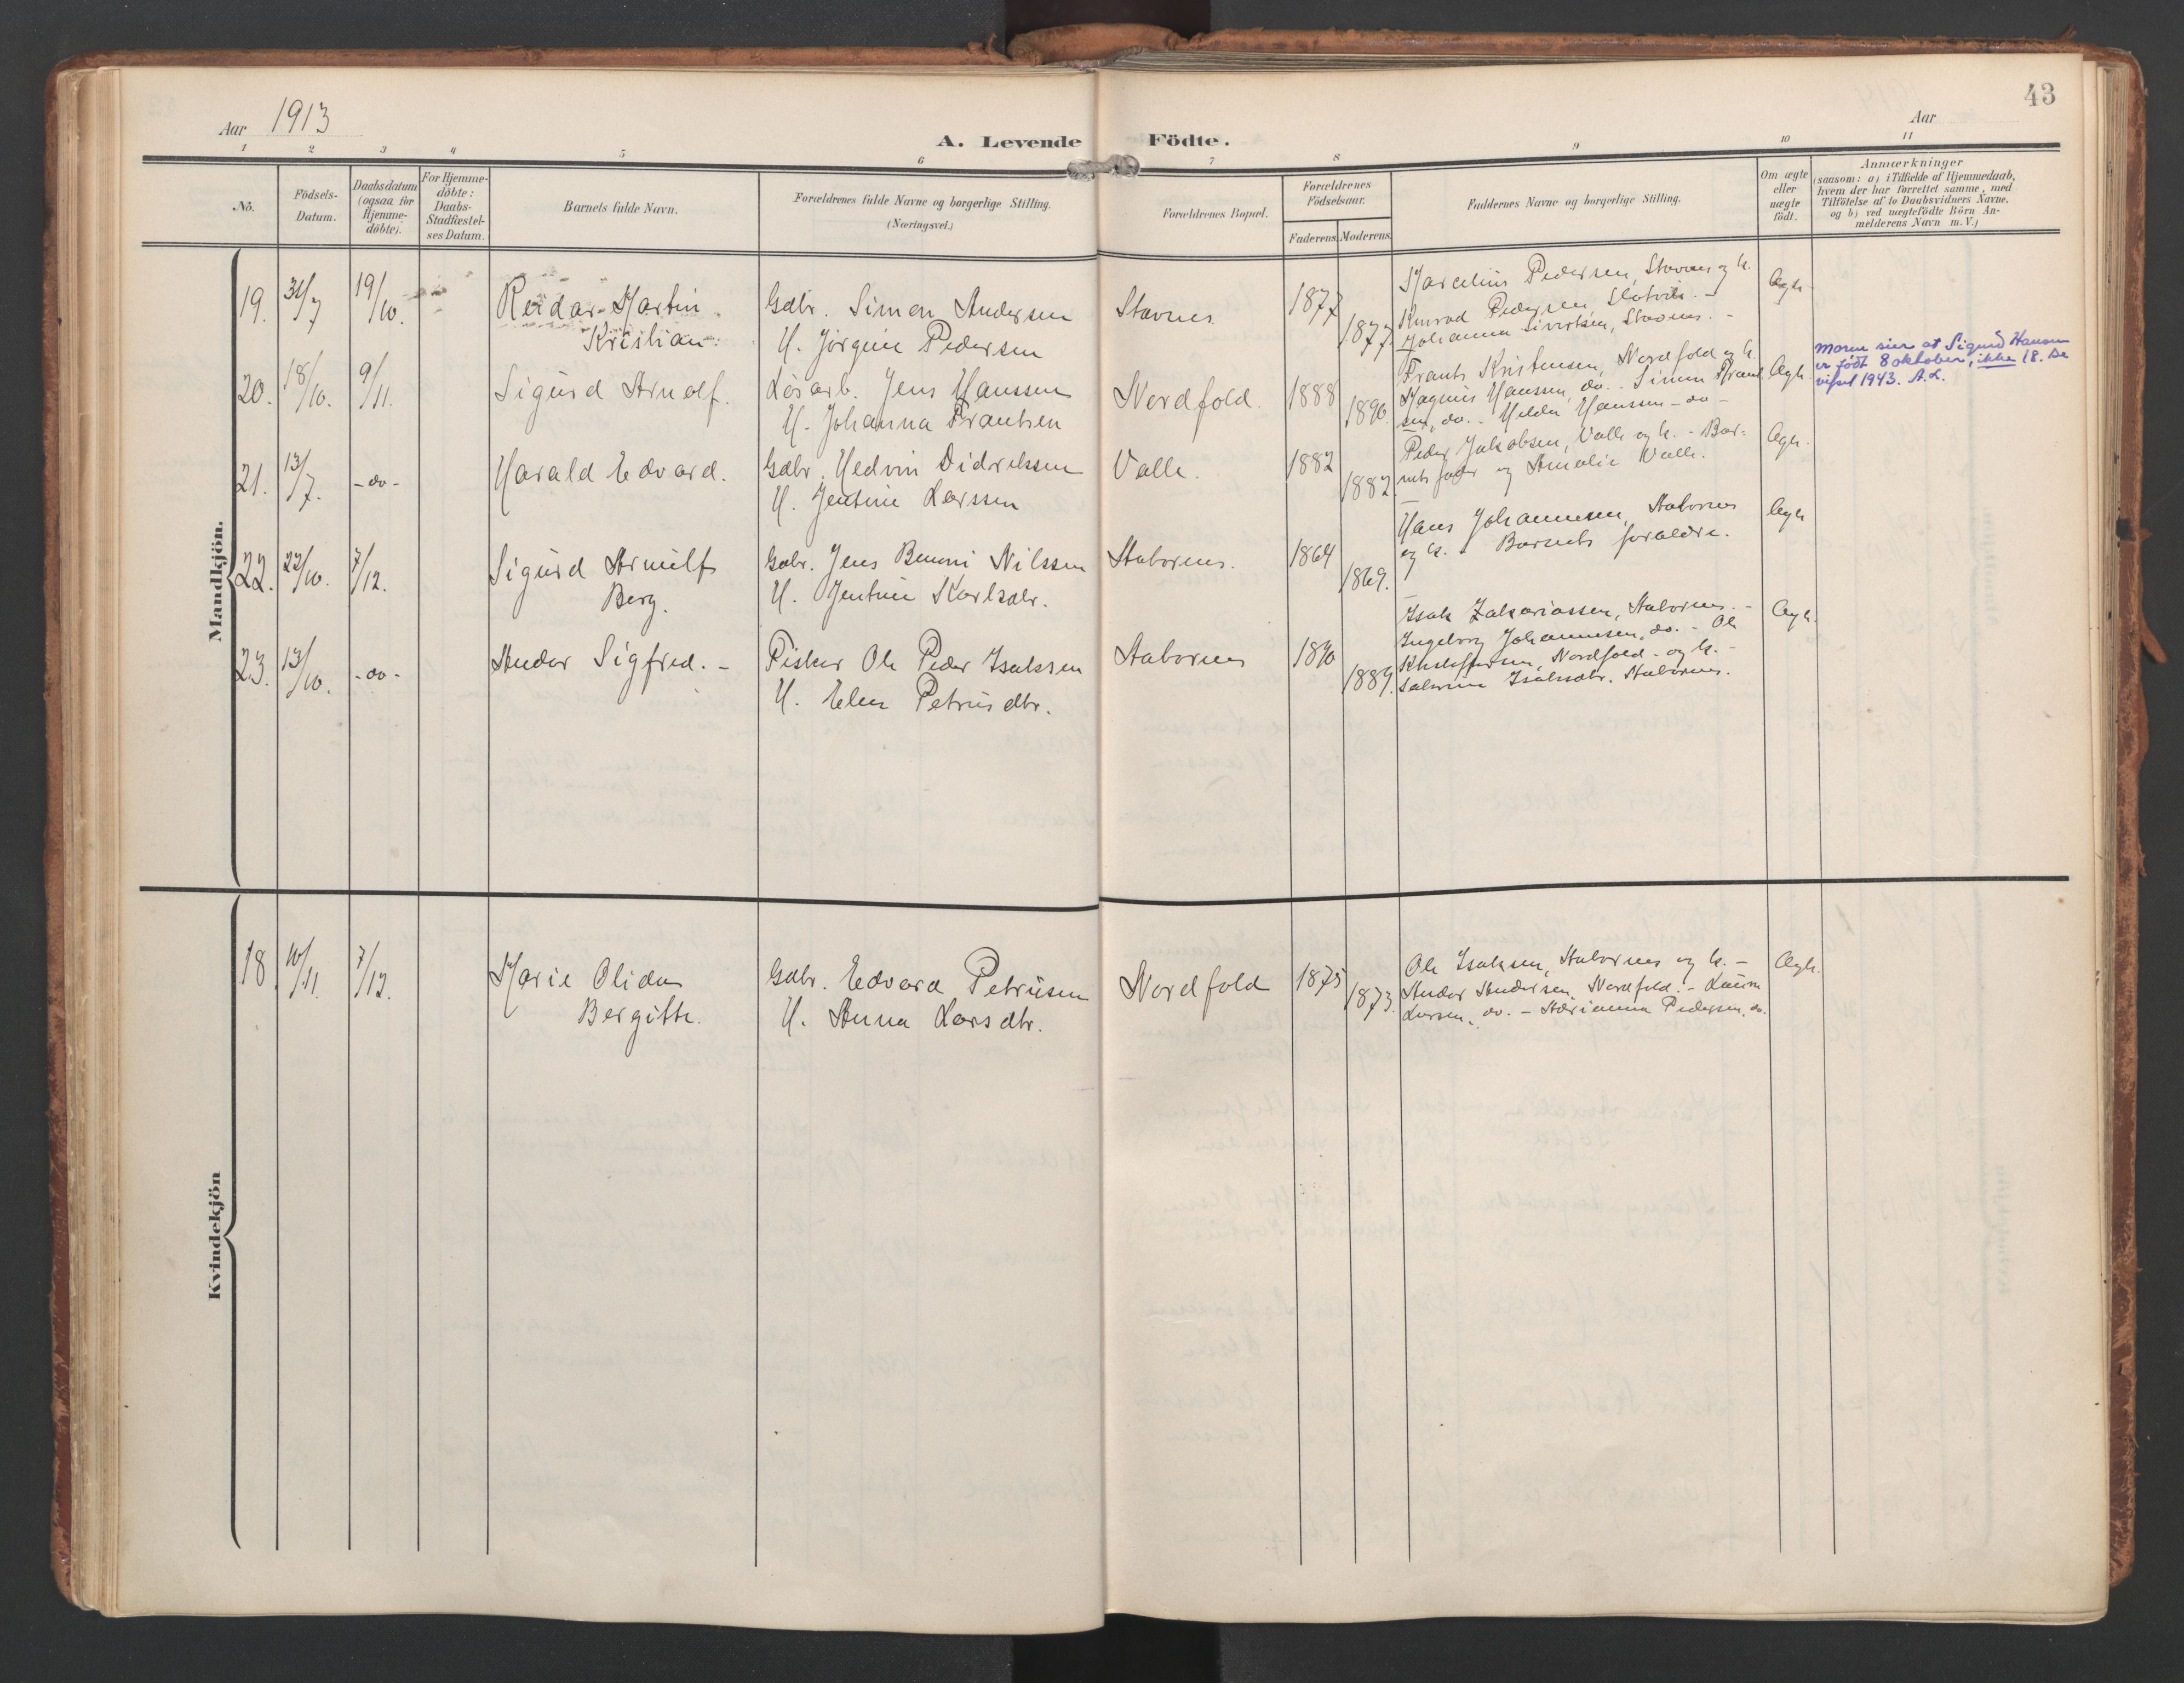 43
Aar 1913
Aar
A. Levende Födte.
1 2 3 4 5 6 7 8 9 10 11
No.
Födsels-
Datum.
Daabsdatum
(ogsaa för
Hjemme-
döbte).
For Hjemme-
döbte:
Daabs-
Stadfæstel-
ses Datum.
Barnets fulde Navn.
Forældrenes fulde Navne og borgerlige Stilling.
(Næringsvei.)
Forældrenes Bopæl.
Forældrenes
Födselsaar.
Faderens Moderens
Faddernes Navne og borgerlige Stilling.
Om ægte
eller
uægte
födt.
Anmærkninger
(saasom: a) i Tilfælde af Hjemmedaab,
hvem der har forrettet samme, med
Tilföielse af to Daabsvidners Navne.
og b) ved uægtefödte Börn An-
melderens Navn m. V.)
Mandkjön.
19. 31/7 19/10.
Reidar Martin
Kristian.
Gdbr. Simon Andersen
H. Jörgine Pedersen
Stavnes
1877
1877
Marcelius Pedersen, Stavnes og h.
Konrad Pedersen,
Johanna Sivertsen, Stavnes. -
Ægte
20. 18/10. 9/11.
Sigurd Arnolf.
Lösarb. Jens Hanssen
H. Johanna Frantsen
Nordfold.
1888
1890.
Frants Kristensen, Nordfold og h.
Magnus Hanssen, do. - Simon Frant
sen, do. - Hilda Hanssen - do -
Ægte
Moren sier at Sigurd Hansen
er født 8 oktober, ikke 18. Be
vist 1943. A.L.
21. 13/7. - do -
Harald Edvard.
Gdbr. Hedvin Didriksen
H. Jentine Larssen
Valle.
1882
1882.
Peder Jakobsen, Valle og h. - Bar-
nets fader og Amalie Valle.
Ægte.
22. 22/10. 7/12.
Sigurd Arnulf
Berg.
Gdbr. Jens Benoni Nilssen
H. Jentine Karlsdtr.
Stabornes.
1864
1869.
Hans Johannesen, Stabornes
og h. - Barnets foraldre.
Ægte
23. 13/10. - do -
Andor Sigfred. -
Fisker Ole Peder Isaksen
H. Elen Petrusdtr.
Stabornes
1890
1889.
Isak Zakariassen, Stabornes. -
Ingeborg Johannesen, do. - Ole
Kristoffersen, Nordfold - og h. -
Isaksdtr. Stabornes.
Ægte.
Kvindekjön
18. 10/11. 7/12.
Marie Olida
Bergitte.
Gdbr. Edvard Petrusen
H. Anna Larsdtr.
Nordfold
1875
1873.
Ole Isaksen, Stabornes og h. -
Andor Andersen, Nordfold. -
Larsen, do. - Adrianna Pedersen, do.
Ægte.